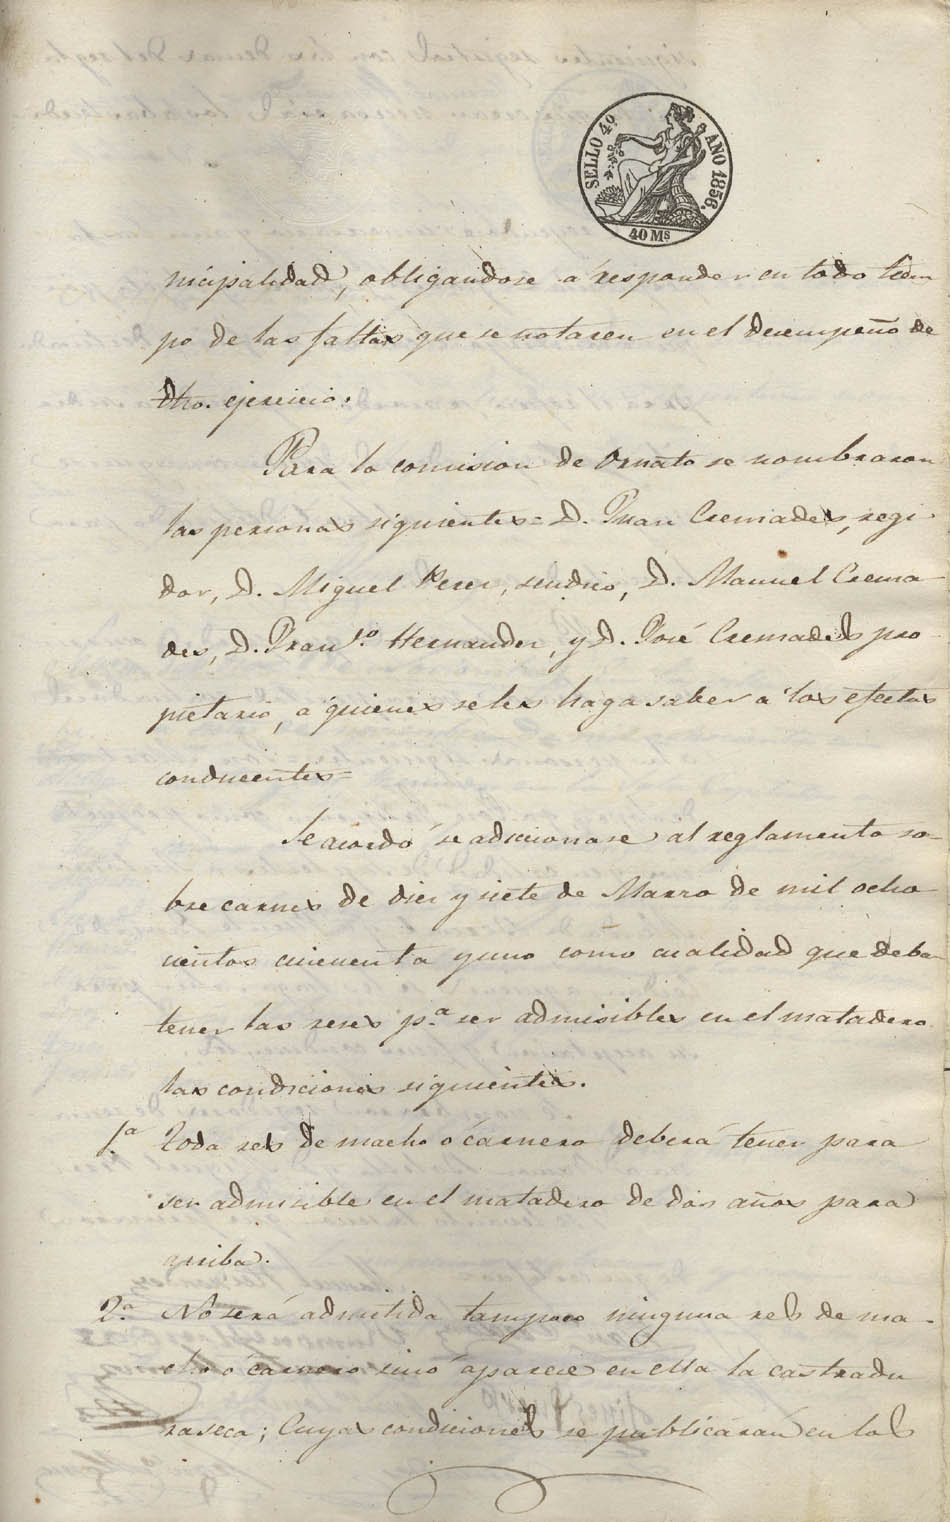 SELLO 4º. AÑO 1856.
40 Ms
nicipalidad, obligandose á responder en todo tiem
po de las faltas que se notaren en el desempeño de
dho. ejercicio.
Para la comision de Ornato se nombraron
las personas siguientes= D. Juan Cremades, regi
dor, D. Miguel Perez, sindico, D. Manuel Crema-
des, D. Franco. Hernandez, y D. José Cremades pro
pietario, á quienes se les haga saber á los efectos
conducentes=
Se acordó se adicionase al reglamento so-
bre carnes de diez y siete de Marzo de mil ocho
cientos cincuenta y uno como cualidad que deban
tener las reses pa. ser admisibles en el matadero
las condiciones siguientes.
1.ª Toda res de macho ó carnero deberá tener para
ser admisible en el matadero de dos años para
arriba.
2.ª No será admitida tampoco ninguna res de ma-
cho ó carnero sinó aparece en ella la castradu
ra seca; Cuyas condiciones se publicarán en los